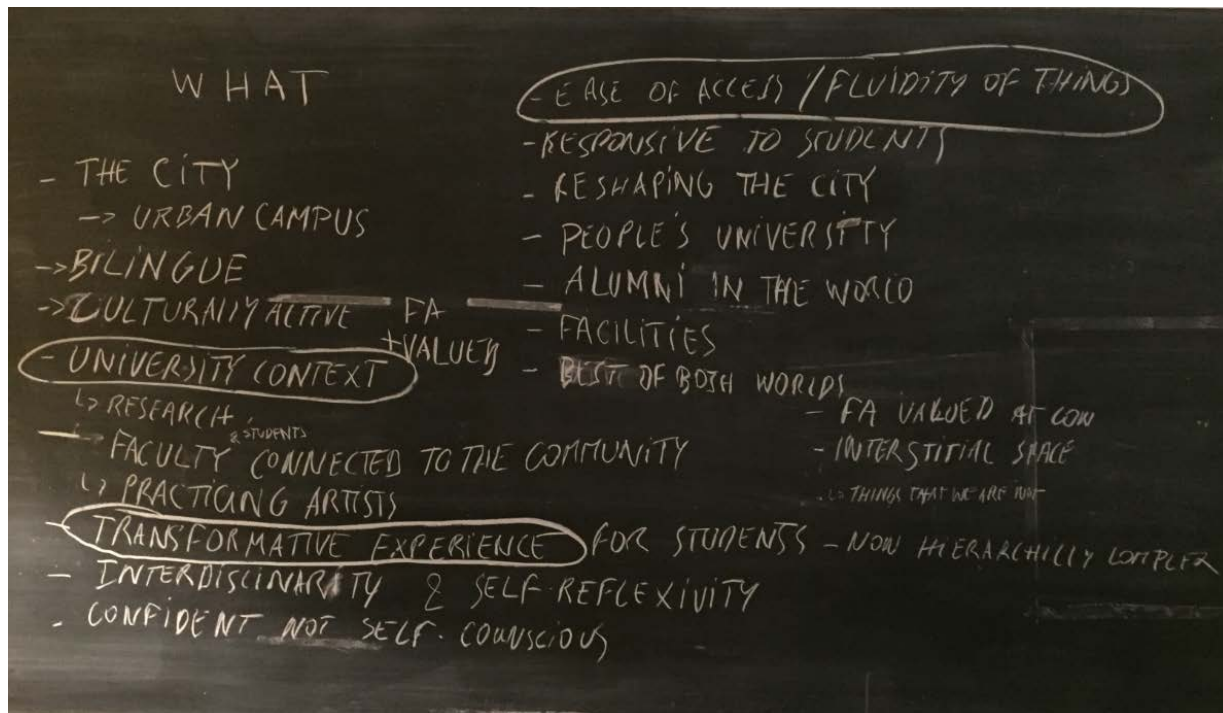 WHAT
- THE CITY
-> URBAN CAMPUS
-> BILINGUE
-> CULTURALLY ACTIVE
FA
+VALUES
- UNIVERSITY CONTEXT
↳ RESEARCH
- FACULTY & STUDENTS CONNECTED TO THE COMMUNITY
↳ PRACTICING ARTISTS
- TRANSFORMATIVE EXPERIENCE FOR STUDENTS
- INTERDISCLINARITY & SELF-REFLEXIVITY
- CONFIDENT NOT SELF-COUNSCIOUS
- EASE OF ACCESS / FLUIDITY OF THINGS
- RESPONSIVE TO STUDENTS
- RESHAPING THE CITY
- PEOPLE'S UNIVERSITY
- ALUMNI IN THE WORLD
- FACILITIES
- BEST OF BOTH WORLDS
- FA VALUED AT CON
- INTERSTITIAL SPACE
↳ THINGS THAT WE ARE NOT
- NON HIERARCHILLY COMPLEX